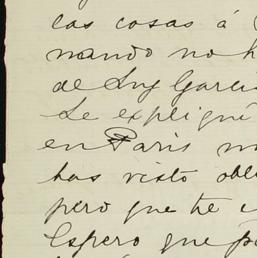 las cosas á
mando no h
de Ing Garcia
Le expliqué
en Paris m
has visto obli
pero que te e
Espero que p